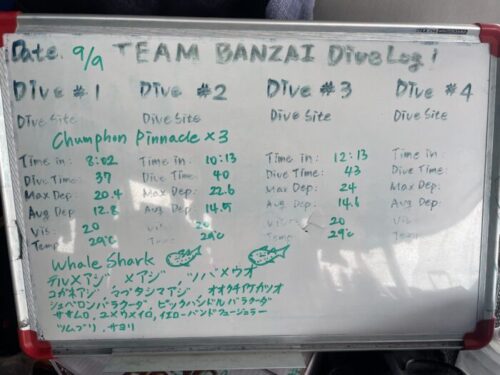 Date. 9/9 TEAM BANZAI Dive Log!
Dive #1 Dive #2 Dive #3 Dive #4
Dive Site Dive Site Dive Site Dive Site
Chumphon Pinnacle x3
Time in: 8:02 Time in: 10:13 Time in: 12:13 Time in:
Dive Time: 37 Dive Time: 40 Dive Time: 43 Dive Time:
Max Dep: 20.4 Max Dep: 22.6 Max Dep: 24 Max Dep:
Avg Dep: 12.8 Avg Dep: 14.5 Avg Dep: 14.6 Avg Dep:
Vis: 20 Vis: 20 Vis: 20 Vis:
Temp: 29℃ 29℃ Temp: 29℃
Whale Shark
テルメアジ, メアジ, ツバメウオ
コガネアジ, マブタシマアジ, オオクチイケカツオ
シェベロンバラクーダ, ピックハンドルバラクーダ
ササムロ, ユメウメイロ, イエローバンドフュージュラー
ツムブリ, サヨリ